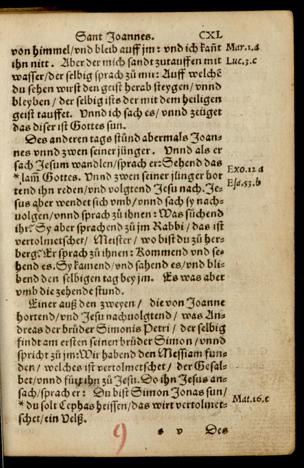 Sant Joannes.
CXL
von himmel/vnd bleib auff jm: vnd ich kañt
Mar.1.a
ihn nitt. Aber der mich sandt zutauffen mit
Luc.3.c
wasser/der selbig sprach zů mir: Auff welchẽ
du sehen wirst den geist herab steygen/vnnd
bleyben/ der selbig ists der mit dem heiligen
geist tauffet. Vnnd ich sach es/ vnnd zeüget
das diser ist Gottes sun.
Des anderen tags stůnd abermals Joan⸗
nes vnnd zwen seiner jünger. Vnnd als er
sach Jesum wandlen/sprach er: Sehend das
*lam̃ Gottes. Vnnd zwen seiner jünger hor
Exo.12.a
tend ihn reden/vnd volgtend Jesu nach. Je⸗
Esa.53.b
sus aber wendet sich vmb/vnnd sach sy nach⸗
uolgen/vnnd sprach zů ihnen: Was sůchend
ihr? Sy aber sprachend zů jm Rabbi/ das ist
vertolmetschet/ Meister/ wo bist du zů her⸗
berg? Er sprach zů ihnen: Kommend vnd se⸗
hend es. Sy kamend/vnd sahend es/vnd bli⸗
bend den selbigen tag bey jm. Es was aber
vmb die zehende stund.
Einer auß den zweyen/ die von Joanne
hortend/vnd Jesu nachuolgtend/ was An⸗
dreas der brůder Simonis Petri/ der selbig
findt am ersten seinen brůder Simon/ vnnd
spricht zů jm: Wir habend den Messiam fun⸗
den/ welches ist vertolmetschet/ der Gesal⸗
bet/vnnd fůrt ihn zů Jesu. Do ihn Jesus an⸗
sach/sprach er: Du bist Simon Jonas sun/
*du solt Cephas heissen/das wirt vertolmet⸗
Mat.16.c
schet/ein Velß.
9
s v
Des